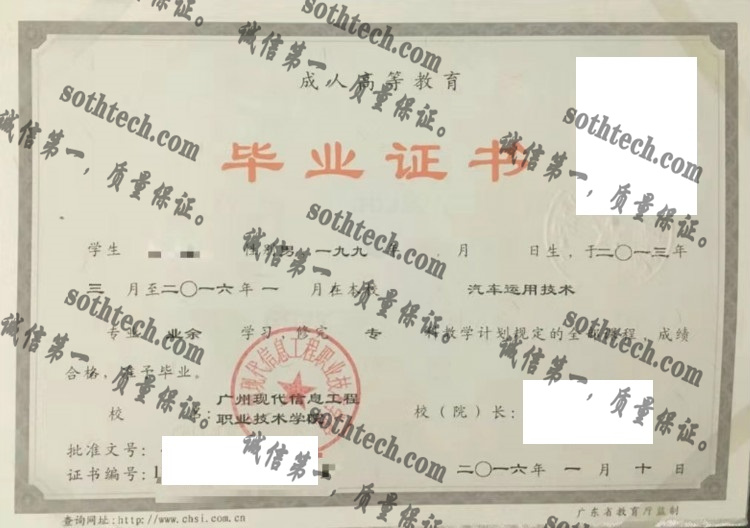 成人高等教育
毕业证书
学生 性别男，一九九 年 月 日生，于二〇一三年
三 月至二〇一六年 一 月在本校 汽车运用技术
专业 业余 学习，修完 专 科教学计划规定的全部课程，成绩
合格，准予毕业。
广州现代信息工程
校 名： 职业技术学院
校（院）长：
批准文号：
证书编号：1
二〇一六年 一 月 十 日
查询网址：http://www.chsi.com.cn
广东省教育厅监制
sothtech.com
诚信第一，质量保证。
sothtech.com
诚信第一，质量保证。
sothtech.com
诚信第一，质量保证。
sothtech.com
诚信第一，质量保证。
sothtech.com
诚信第一，质量保证。
sothtech.com
诚信第一，质量保证。
sothtech.com
诚信第一，质量保证。
sothtech.com
诚信第一，质量保证。